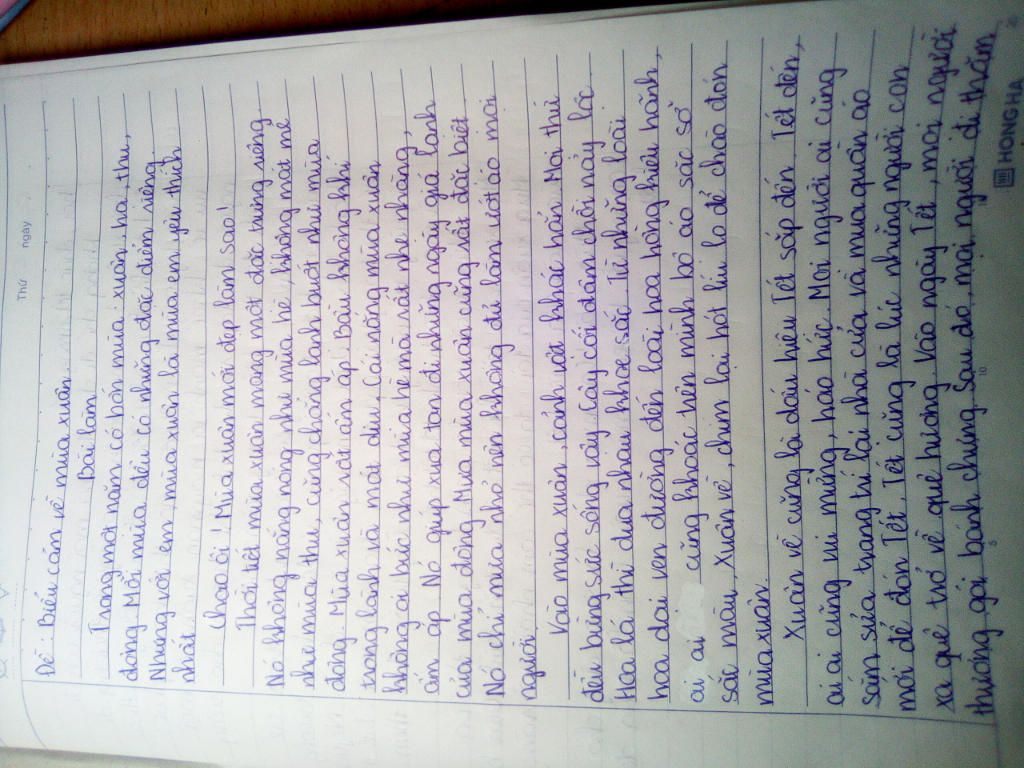 Thứ ngày
Đề: Biểu cảm về mùa xuân.
Bài làm
Trong một năm có bốn mùa xuân, hạ, thu,
đông. Mỗi mùa đều có những đặc điểm riêng.
Nhưng với em, mùa xuân là mùa em yêu thích
nhất.
Chao ôi! Mùa xuân mới đẹp làm sao!
Thời tiết mùa xuân mang một đặc trưng riêng.
Nó không nắng nóng như mùa hè, không mát mẻ
như mùa thu, cũng chẳng lạnh buốt như mùa
đông. Mùa xuân rất ấm áp. Bầu không khí
trong lành và mát dịu. Cái nóng mùa xuân
không oi bức như mùa hè mà rất nhẹ nhàng,
ấm áp. Nó giúp xua tan đi những ngày giá lạnh
của mùa đông. Mưa mùa xuân cũng rất đặc biệt.
Nó chỉ mưa nhỏ nên không đủ làm ướt áo mọi
người.
Vào mùa xuân, cảnh vật khác hẳn. Mọi thứ
đều bừng sức sống vậy. Cây cối đâm chồi nảy lộc.
Hoa lá thi đua nhau khoe sắc. Từ những loài
hoa dại ven đường đến loài hoa hồng kiêu hãnh,
ai ai cũng khoác trên mình bộ áo sặc sỡ
sắc màu. Xuân về, chim lại hót líu lo để chào đón
mùa xuân.
Xuân về cũng là dấu hiệu Tết sắp đến. Tết đến,
ai ai cũng vui mừng, háo hức. Mọi người ai cũng
sắm sửa trang trí lại nhà cửa và mua quần áo
mới để đón Tết. Tết cũng là lúc những người con
xa quê trở về quê hương. Vào ngày Tết, mọi người
thường gói bánh chưng. Sau đó, mọi người đi thăm
HONG HA